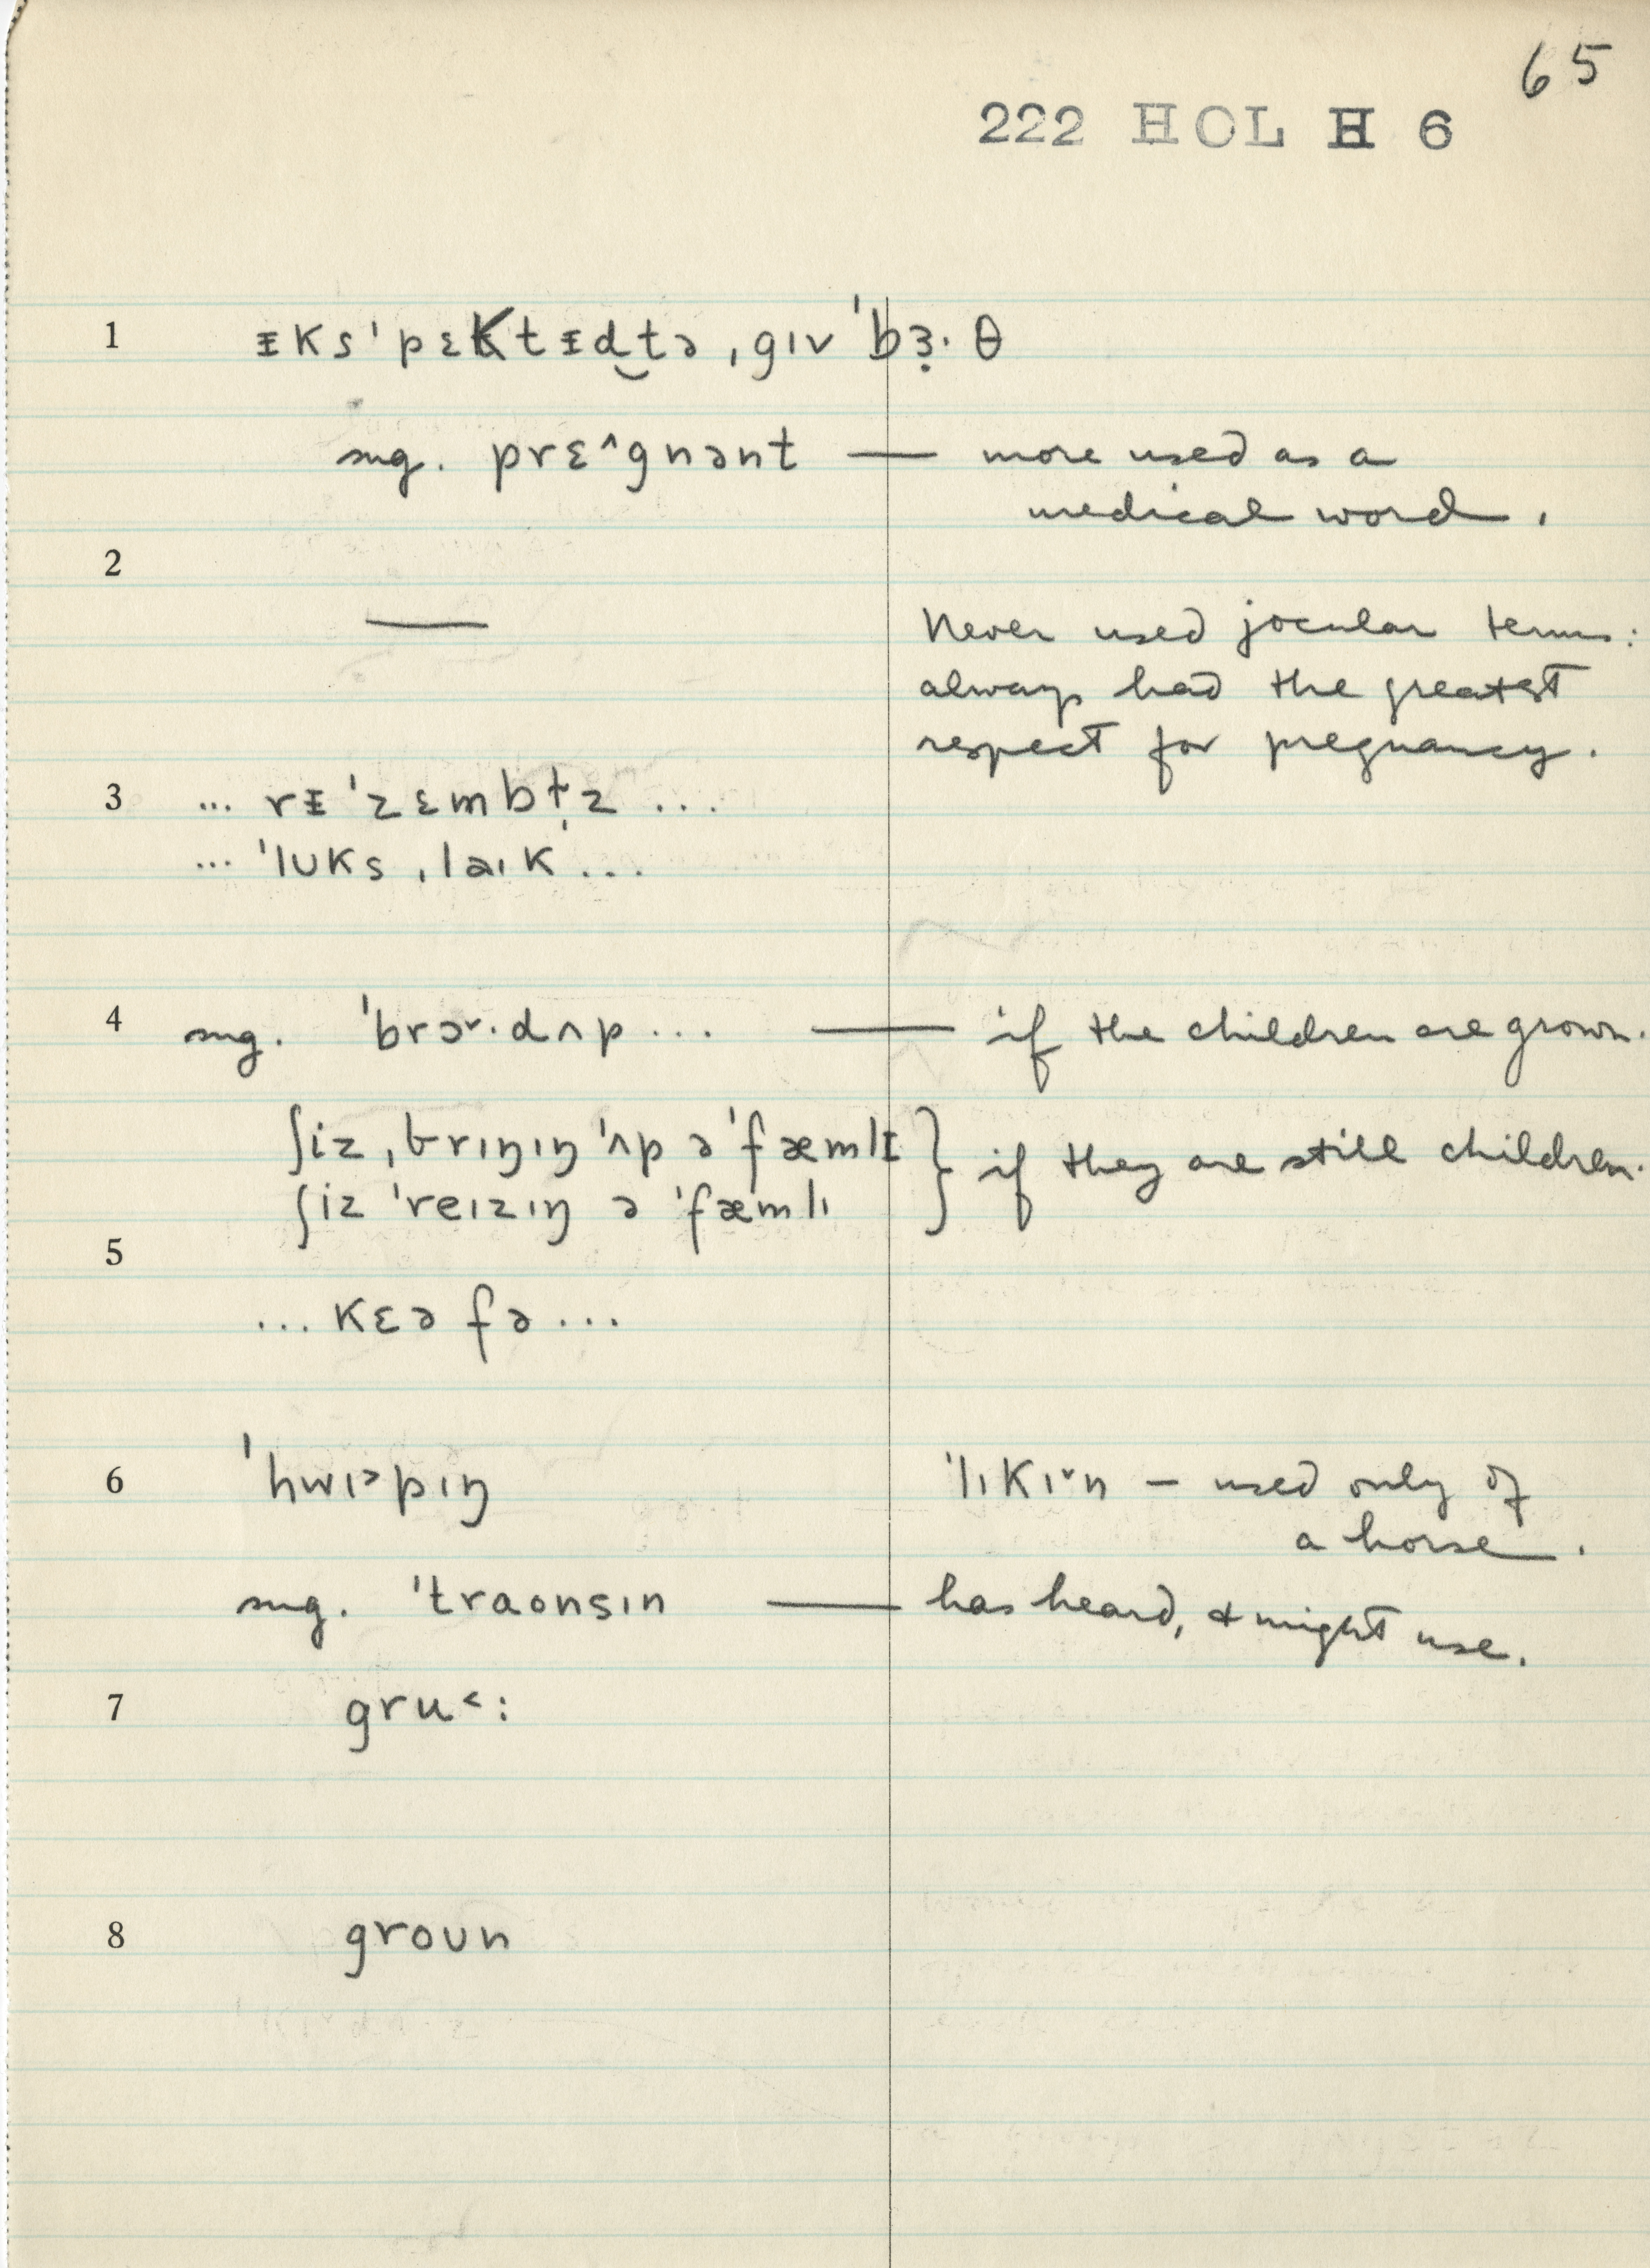 65
222 HOL H 6
1 ᵻksˈpɛktᵻd‿tə ˌgɪv ˈbɜ̣·θ
sug. prɛ^gnənt — more used as a
medical word.
2
— Never used jocular terms:
always had the greatest
respect for pregnancy.
3 ... rᵻˈzɛmbɫ̩z ...
... ˈlʊks ˌlaɪk ...
4 sug. ˈbrɔ˅·dʌp ... — if the children are grown.
ʃiz ˌbrɪŋɪŋ ˈʌp ə ˈfæmlᵻ } if they are still children.
ʃiz ˈreɪzɪŋ ə ˈfæmlɪ
5
... kɛə fə ...
6 ˈhwɪ˃pɪŋ ˈlɪkɪ˅n – used only of
a horse.
sug. ˈtraʊnsɪn — has heard, & might use.
7 gru˂:
8 groun